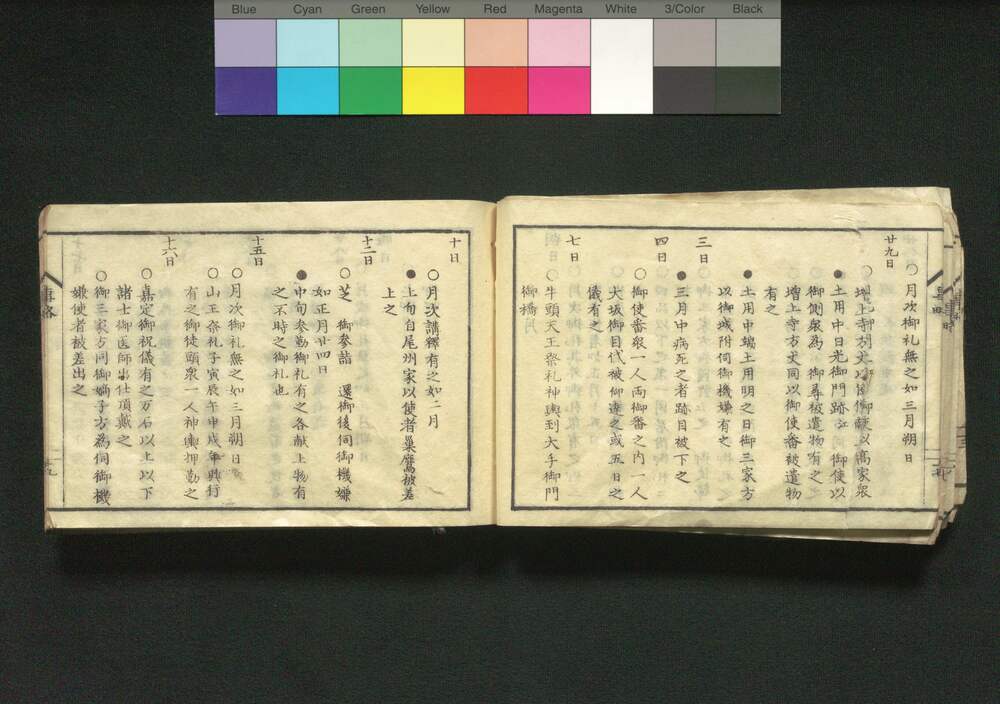 Blue Cyan Green Yellow Red Magenta White 3/Color Black
○月次御礼無之如三月朔日
廿九日
○増上寺方丈以高家衆
●土用中日光御門跡江御使以
御側衆為御尋被遣物有之
増上寺方丈同以御使番被遣物
有之
●土用中端土用明之日御三家方
以御城附伺御機嫌有之
三日
●三月中病死之者跡目被下之
四日
○御使番衆一人両御番之内一人
大坂御目代被仰遣之或五日之
儀有之
七日
○牛頭天王祭礼神輿到大手御門
御橋
十日
○月次講釋有之如二月
●上旬自尾州家以使者巣鷹被差
上之
十二日
○芝 御参詣 還御後伺御機嫌
如正月廿四日
●中旬参勤御礼有之各献上物有
之不時之御礼也
十五日
○月次御礼無之如三月朔日
○山王祭礼子寅辰午申戌年興行
有之御徒頭衆一人神輿押勤之
十六日
○嘉定御祝儀有之万石以上以下
諸士御医師出仕頂戴之
○御三家方同御嫡子方為伺御機
嫌使者被差出之